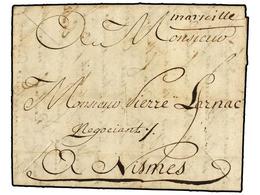 marseille
A Monsieur
Monsieur Pierre Larnac
Negociant /.
A Nismes